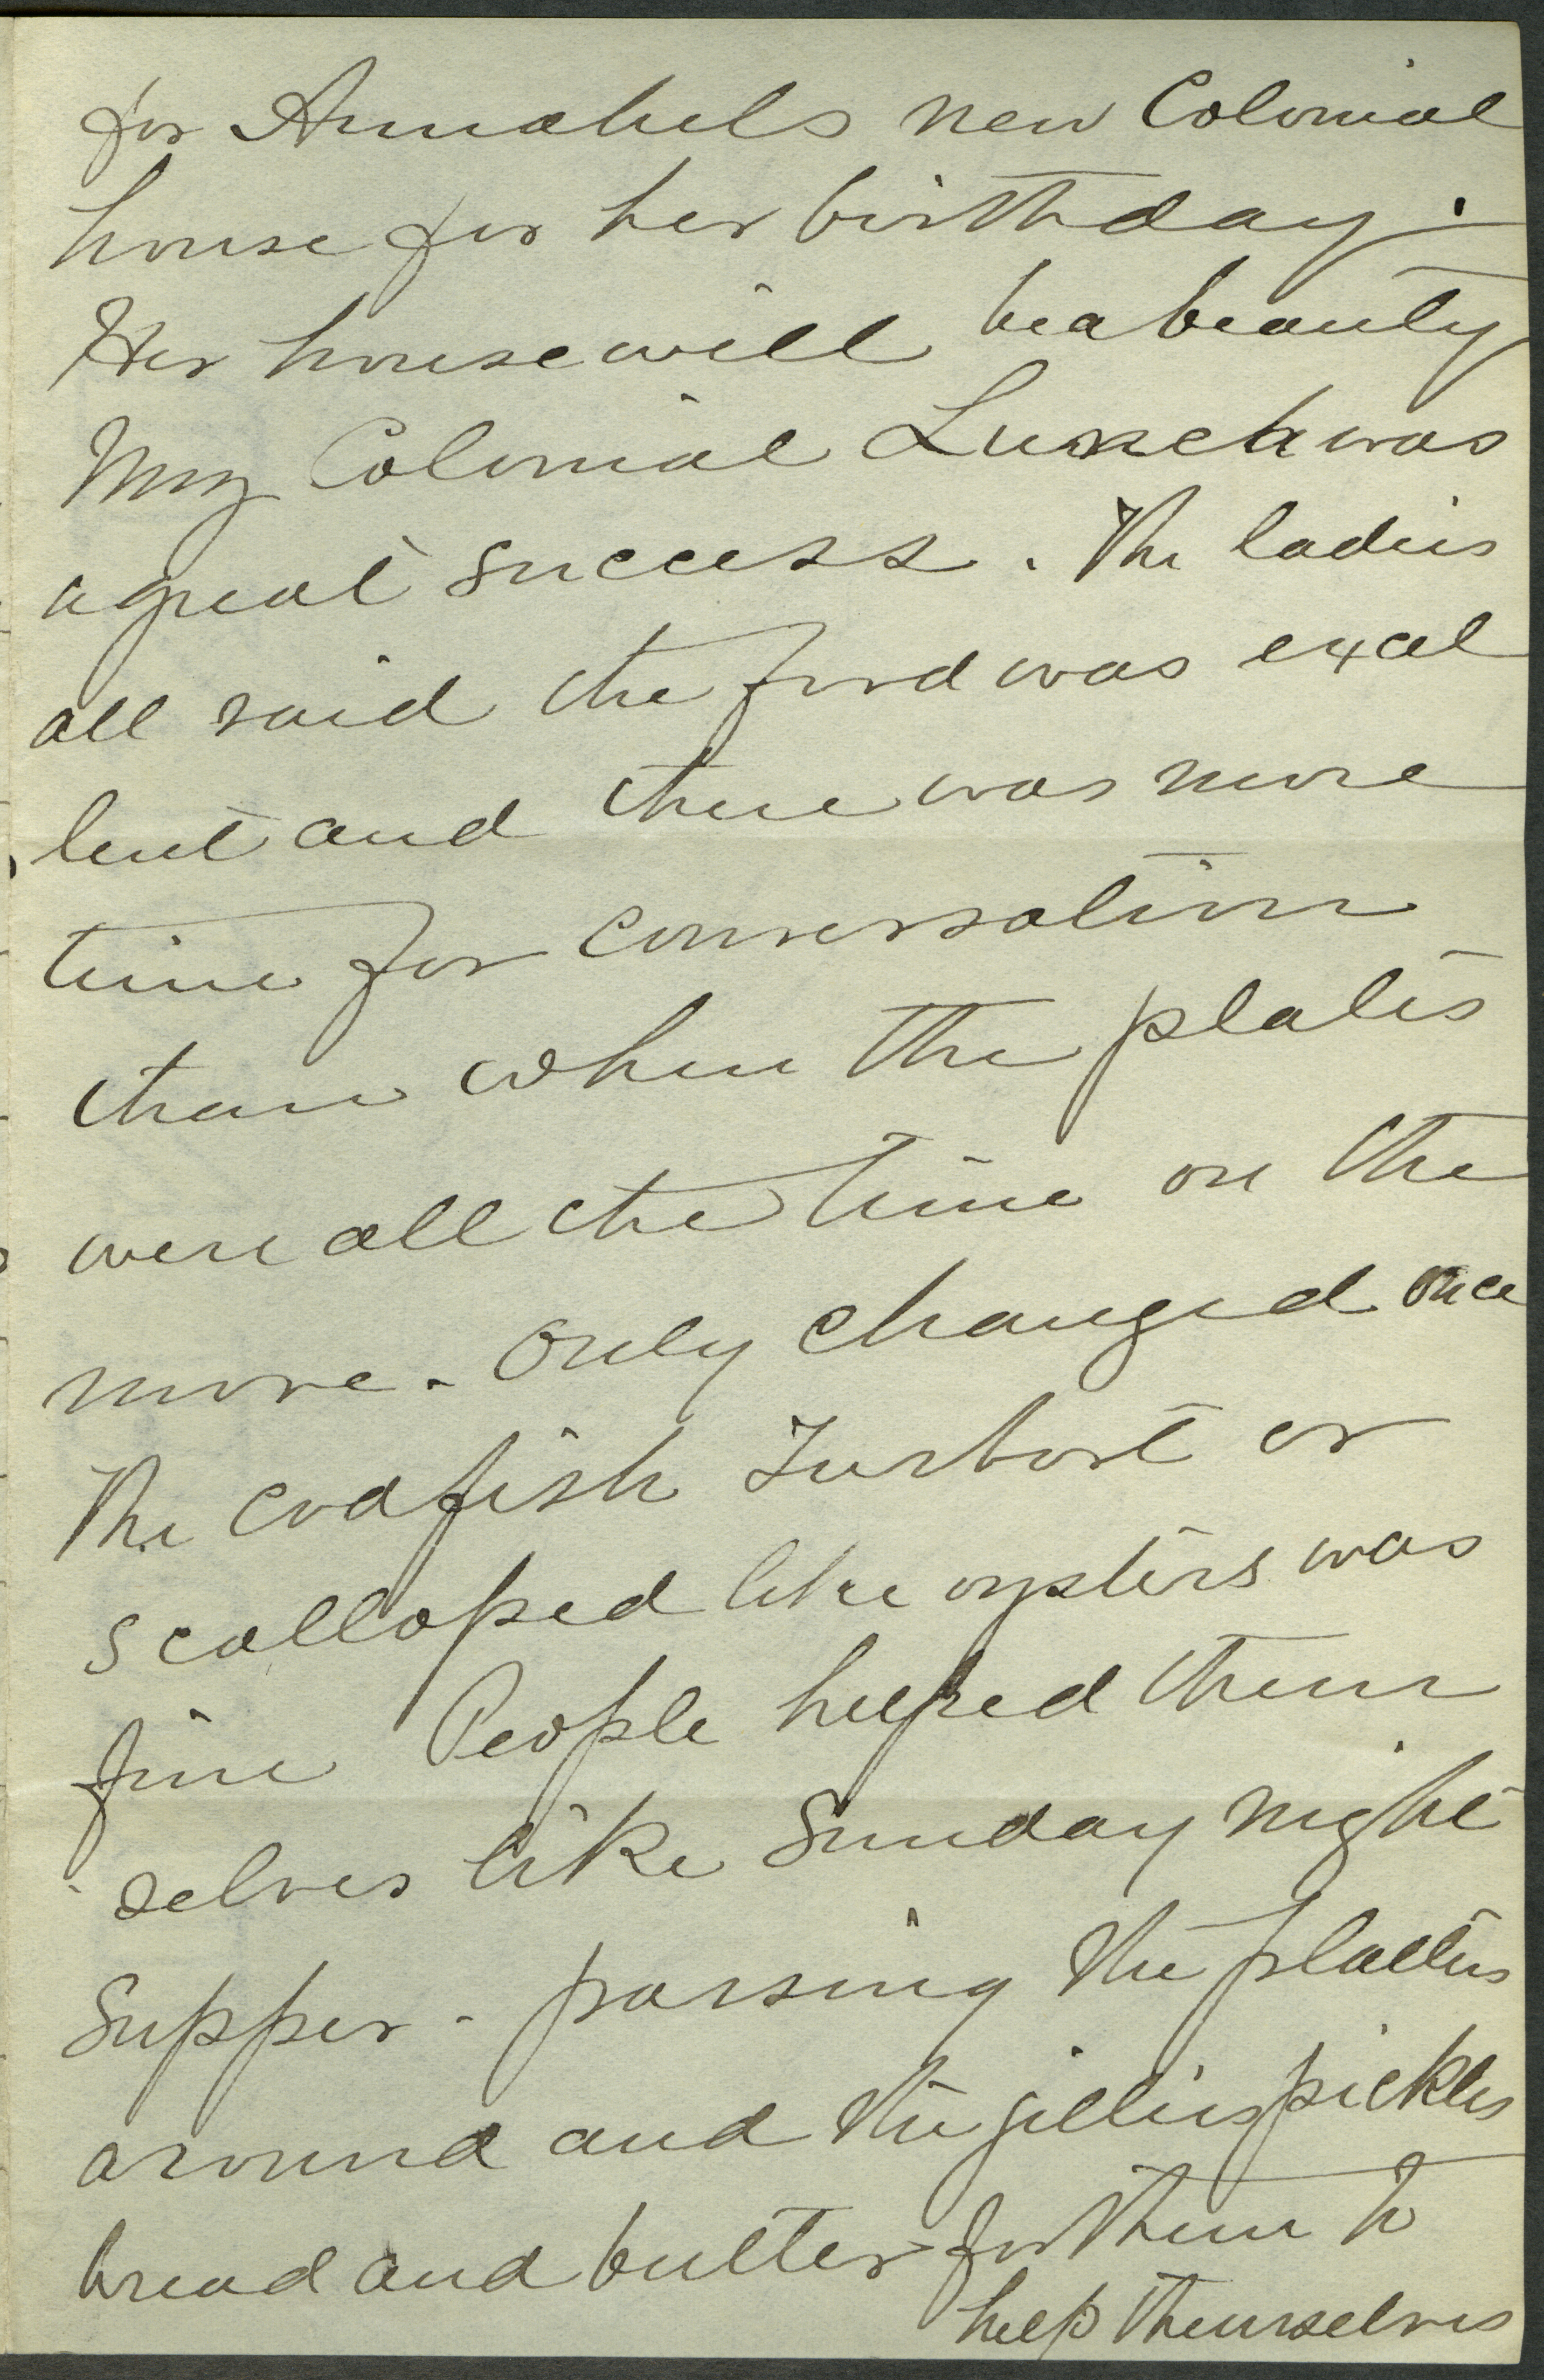 for Annabels new Colonial
house for her birthday.
Her house will be a beauty
My Colonial Lunch was
a great success. The ladies
all said the food was excel
lent and there was more
time for conversation
than when the plates
were all the time on the
move. Only changed once
The codfish Turbot or
scalloped like oysters was
fine People helped them
selves like Sunday night
Supper - passing the platters
around and the jellies pickles
bread and butter for them to
help themselves